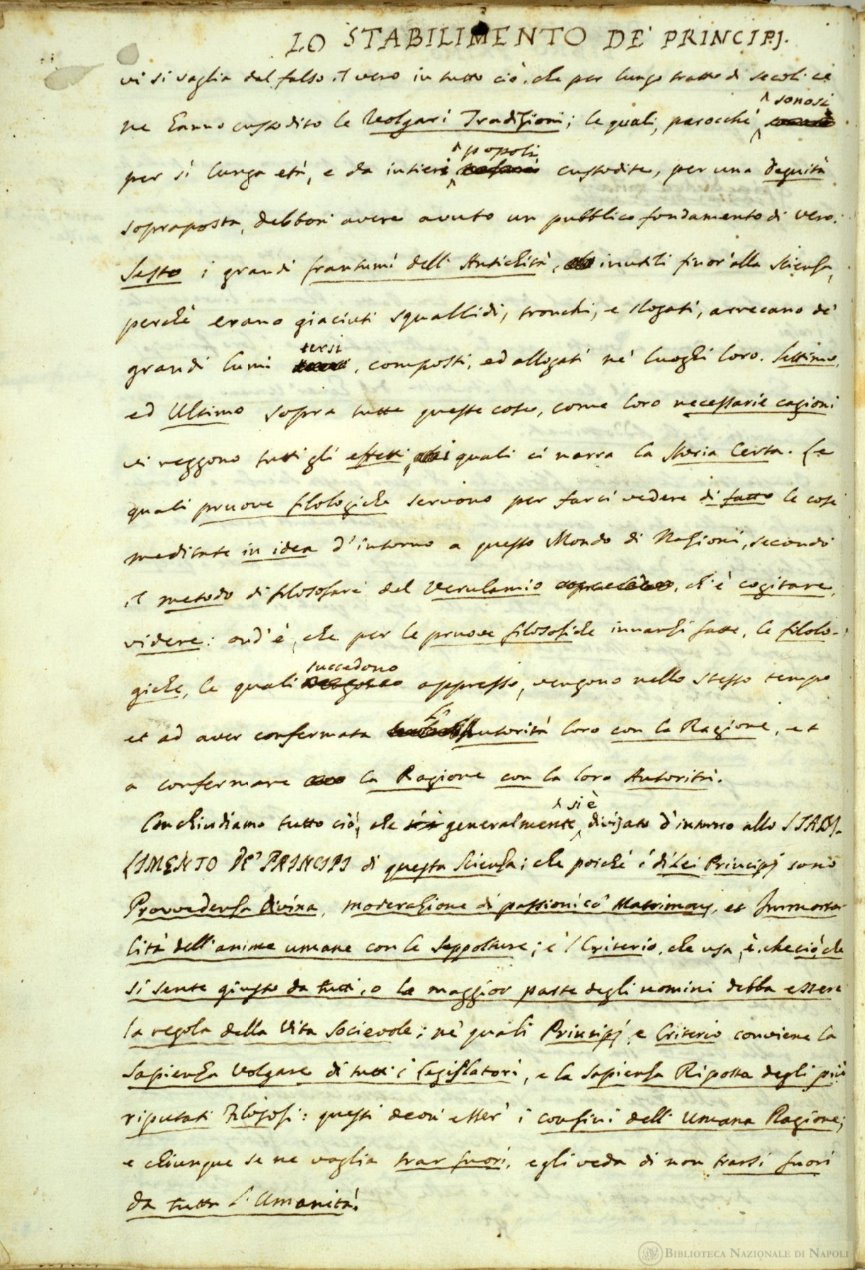 LO STABILIMENTO DE' PRINCIPJ.
vi si vaglia dal falso il vero in tutto ciò, che per lungo tratto di secoli ce
ne hanno custodito le Volgari Tradizioni; le quali, perocchè sonosi
per sì lunga età, e da intieri popoli custodite, per una Degnità
sopraposta, debbon' avere avuto un pubblico fondamento di vero.
Sesto i grandi frantumi dell' Antichità, inutili finor' alla Scienza,
perchè erano giaciuti squallidi, tronchi, e slogati, arrecano de'
grandi lumi tersi, composti, ed allogati ne' luoghi loro. Settimo,
ed Ultimo sopra tutte queste cose, come loro necessarie cagioni
vi reggono tutti gli effetti, i quali ci narra la Storia Certa. Le
quali pruove filologiche servono per farci vedere di fatto le cose
meditate in idea d'intorno a questo Mondo di Nazioni, secondo
il metodo di filosofare del Verulamio, ch'è cogitare,
videre: ond'è, che per le pruove filosofiche innanzi fatte, le filolo-
giche, le quali succedono appresso, vengono nello stesso tempo
et ad aver confermata la Autorità loro con la Ragione, et
a confermare la Ragione con la loro Autorità.
Conchiudiamo tutto ciò, che generalmente si è divisato d'intorno allo STABI-
LIMENTO DE' PRINCIPJ di questa Scienza; che poichè i di lei Principj sono
Provvedenza divina, moderazione di passioni co' Matrimonj, et Immorta-
lità dell'anime umane con le Seppolture; e 'l Criterio, che usa, è, che ciò, che
si sente giusto da tutti, o la maggior parte degli uomini debba essere
la regola della Vita Socievole; ne' quali Principj, e Criterio conviene la
Sapienza Volgare di tutti i Legislatori, e la Sapienza Riposta degli più
riputati Filosofi: questi deon' esser' i confini dell' Umana Ragione;
e chiunque se ne voglia trar fuori, egli veda di non trarsi fuori
da tutta l'Umanità.
BIBLIOTECA NAZIONALE DI NAPOLI